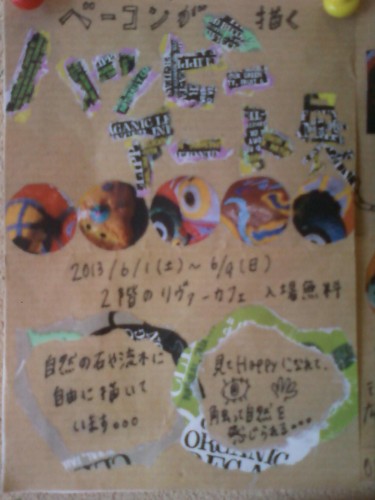 ベーコンが 描く
ハッピー
アート展
2013/6/1(土)〜6/9(日)
2階のリヴァーカフェ 入場無料
自然の石や流木に
自由に描いて
います。。。
見てHappyになれて、
自然を
感じられる。。。
ORGANIC